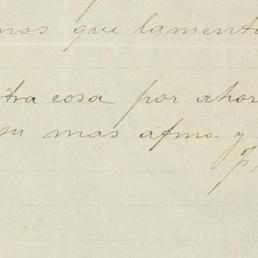 mos que lament
tra cosa por ahor
su mas afmo. y